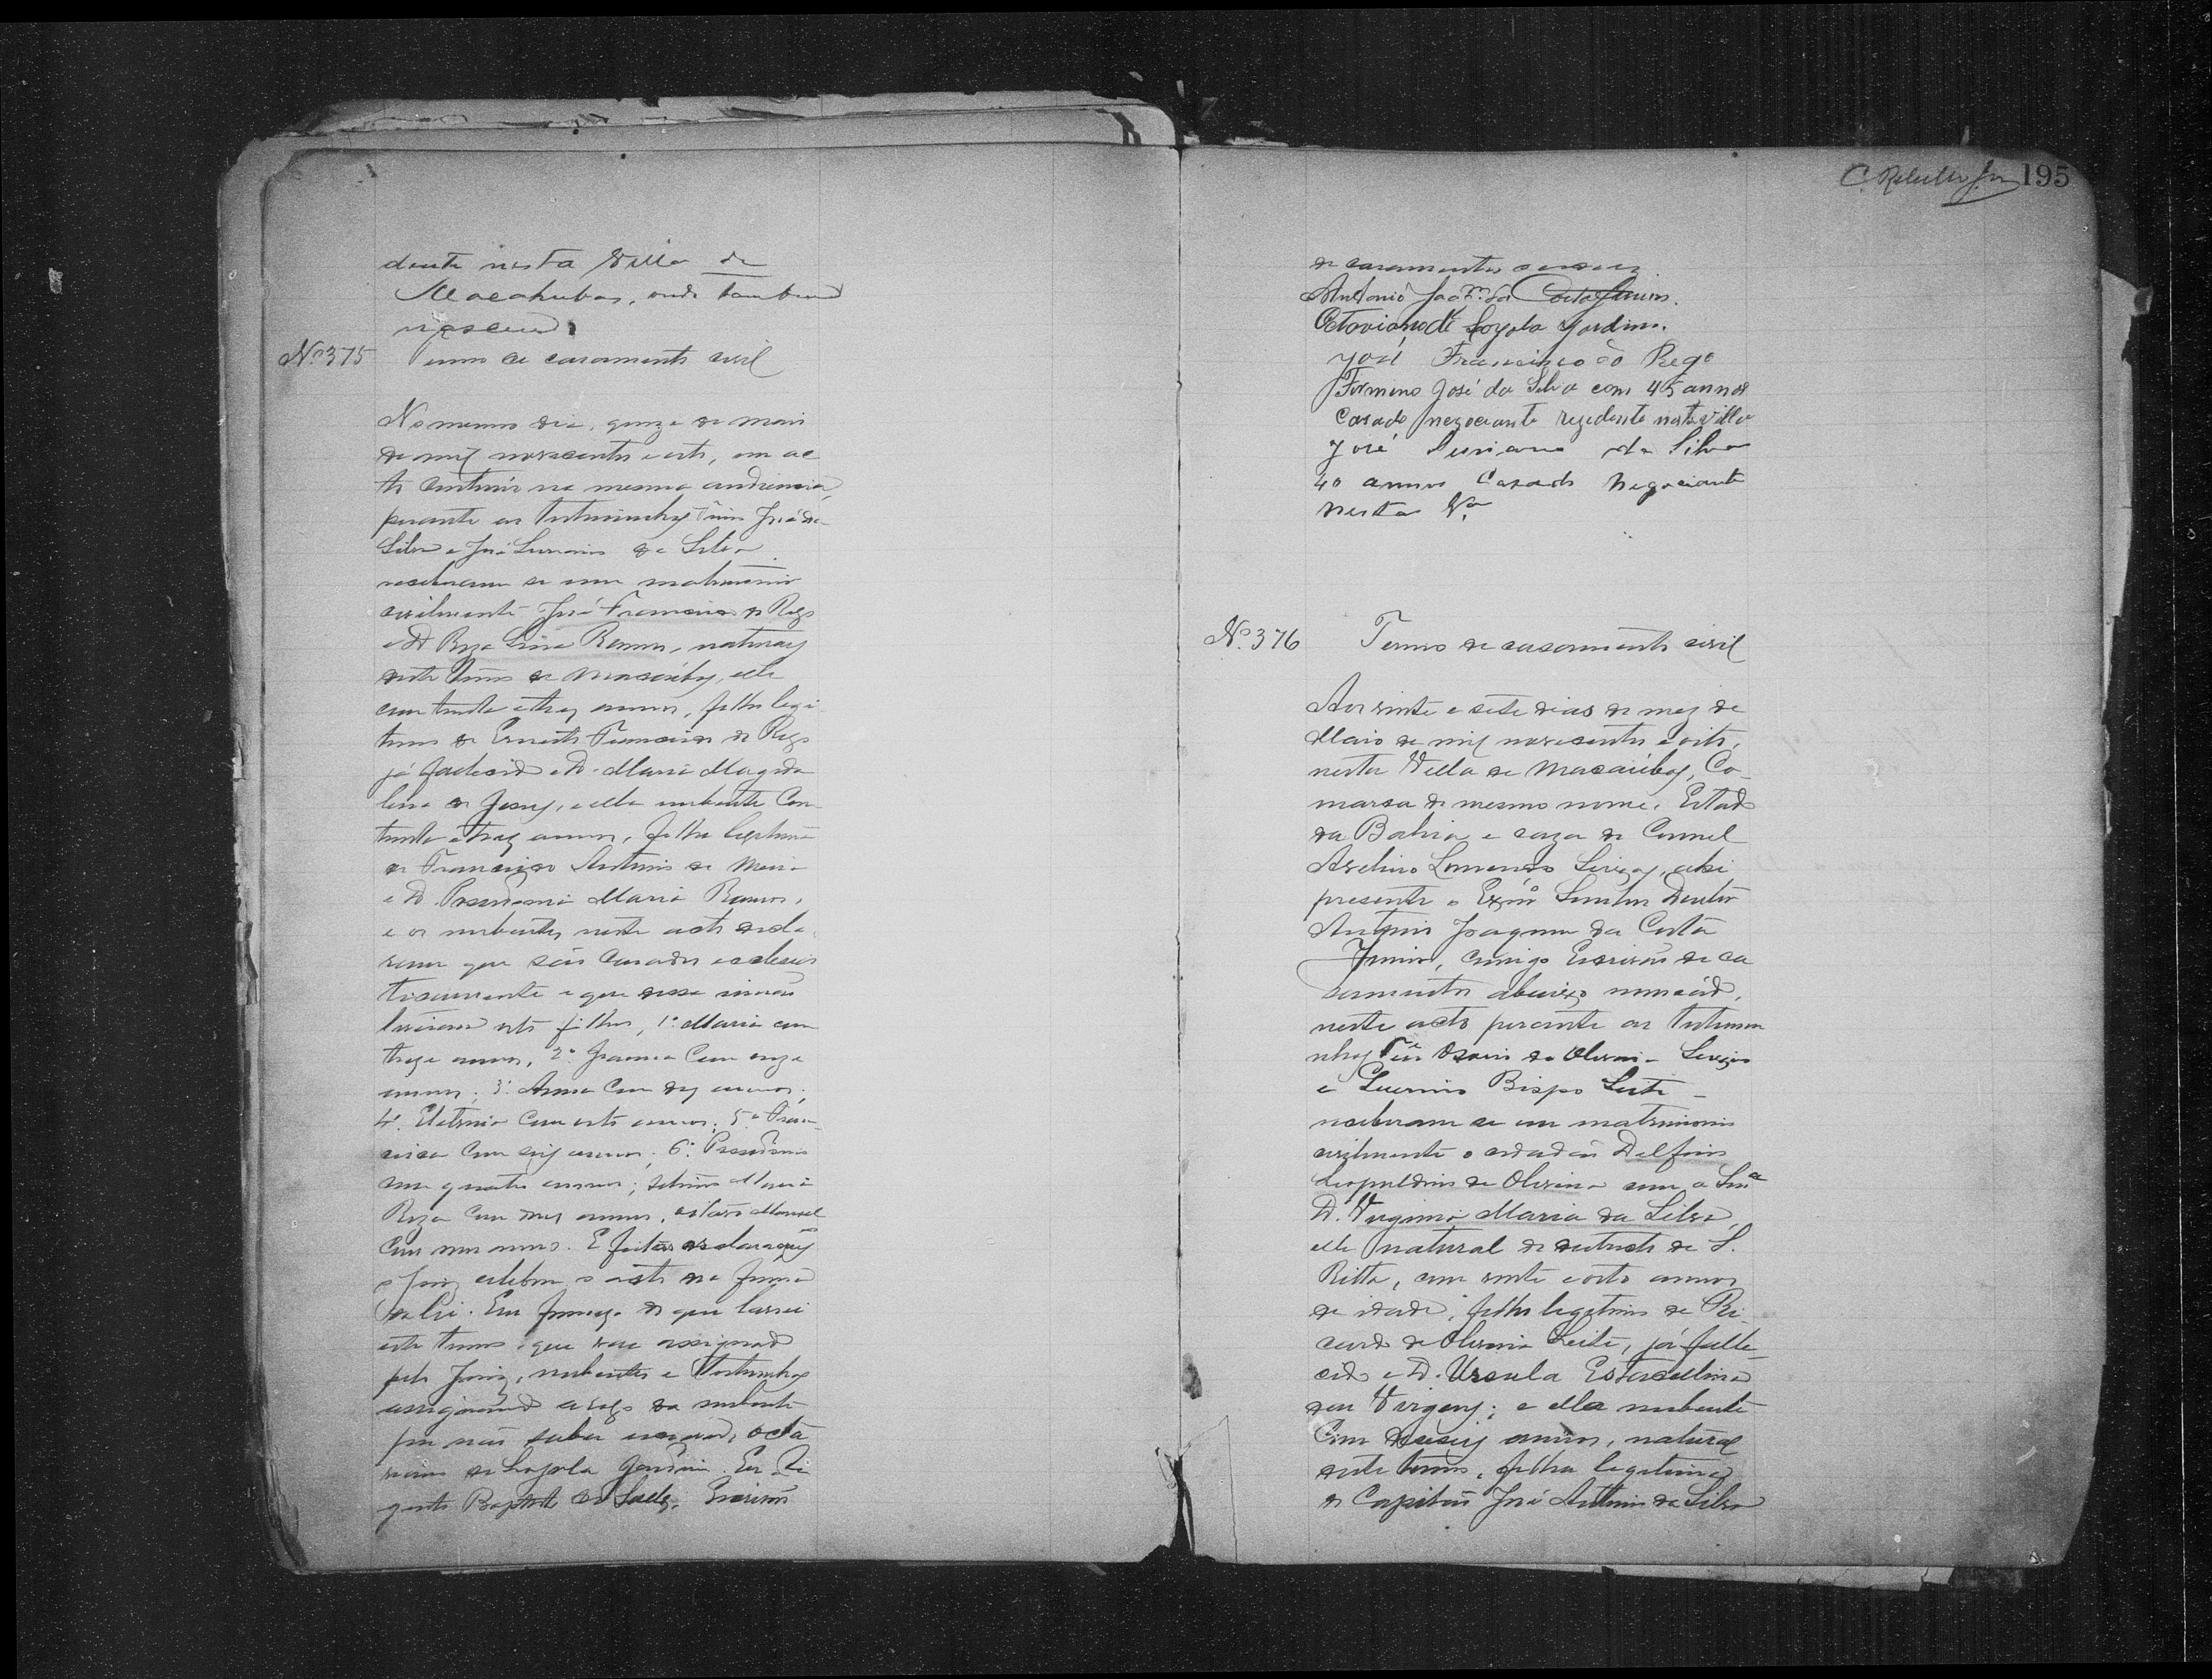 dente nesta Villa de
Macahubas, onde tambem
nasceu.
Nº 375 Termo de casamento civil
No mesmo dia, quinze de maio
de mil novecentos e oito, em ac
to continuo na mesma audiencia,
perante as testemunhas Firmino José da
Silva e José Luriano da Silva
receberam se em matrimonio
civilmente José Francisco do Rego
e D. Roza Ramos, naturaes
deste termo de Macaúbas, elle
com trinta e trez annos, filho legi
timo de Ernesto Francisco do Rego
já fallecido e D. Maria Magda
lena de Jesus, e ella nubente com
trinta e trez annos, filha legitima
de Francisco Antonio de
e D. Maria Ramos,
e os nubentes neste acto decla
ram que são casados eclesias
ticamente e que dessa união
tiveram oito filhos, 1º Maria com
treze annos, 2º Joanna com onze
annos; 3º Anna com dez annos;
4º com oito annos; 5ª Fran
cisca com seis annos; 6º
com quatro annos; setimo Maria
Roza com dois annos, oitavo Manoel
com um anno. E feitas as declarações
o Juiz celebrou o acto na forma
da lei. Em firmeza do que lavrei
este termo que vae assignado
pelo Juiz, nubentes e testemunhas
assignando a rogo da nubente
por não saber escrever, Octa
viano de Loyola Jardim. Eu
Baptista de Salles, Escrivão
195
de casamentos escrevi
Antonio Joaqm. da Costa Junior.
Otaviano de Loyola Jardim.
José Francisco do Rego
Firmino José da Silva com 45 annos
Casado negociante rezidente nesta villa
José Luriano da Silva
40 annos Casado Negociante
nesta Vª
Nº 376 Termo de casamento civil
Aos vinte e sete dias do mez de
Maio de mil novecentos e oito,
nesta Villa de Macaúbas, Co-
marca do mesmo nome, Estado
da Bahia e caza do Coronel
Avelino, ahi
presente o Exmº Senhor Doutor
Antonio Joaquim da Costa
Junior, comigo Escrivão de ca
samentos abaixo nomeado,
neste acto perante as testemu
nhas de Oliveira
e Bispo Leite
receberam se em matrimonio
civilmente o cidadão Delfino
Leopoldino de Oliveira com a Snrª
D. Virginia Maria da Silva,
elle natural do districto de S.
Ritta, com vinte e oito annos
de idade, filho legitimo de Ri-
cardo de Oliveira Leite, já falle
cido e D. Ursula Estacellina
das Virgens; e ella nubente
com dezeseis annos, natural
deste termo, filha legitima
do Capitão José Antonio da Silva